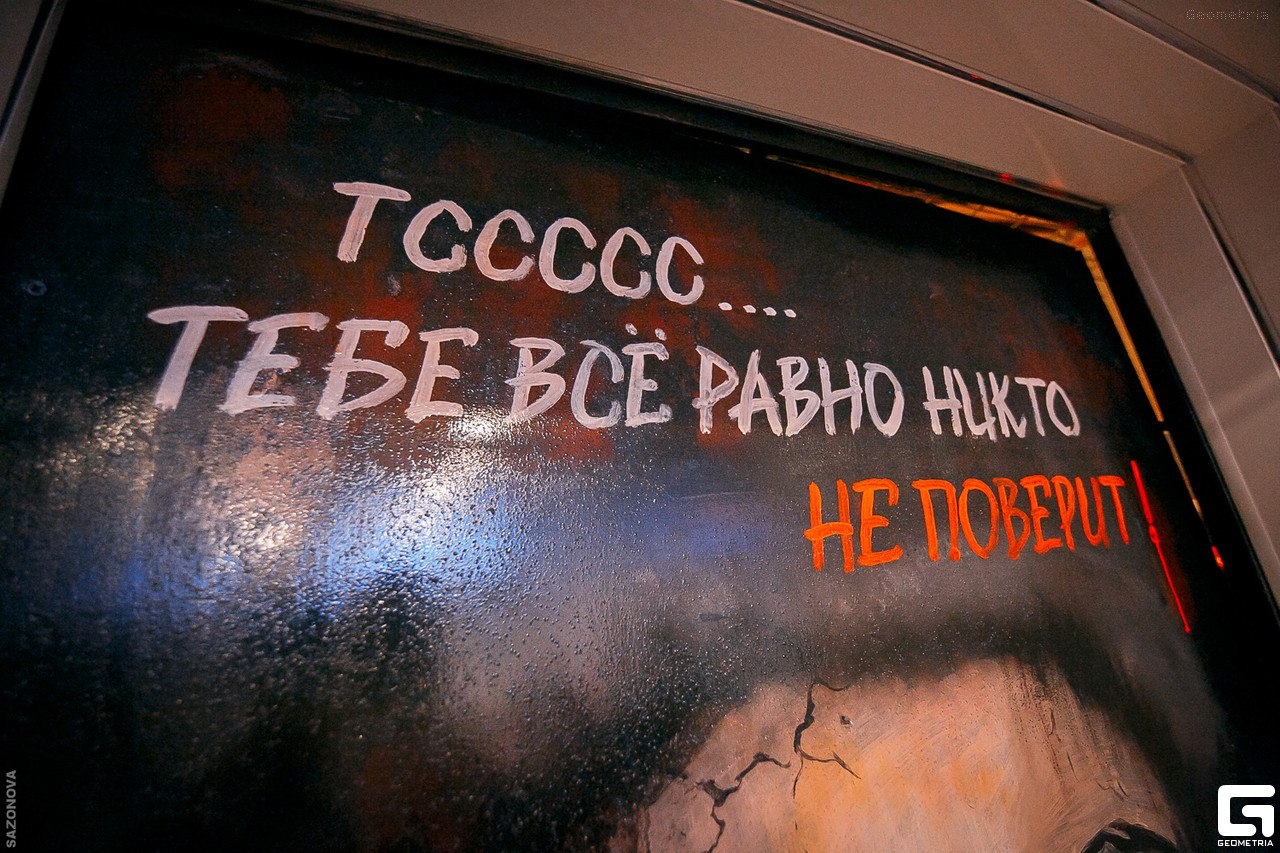 Geometria
ТССССС....
ТЕБЕ ВСЁ РАВНО НИКТО
НЕ ПОВЕРИТ
SAZONOVA
GEOMETRIA